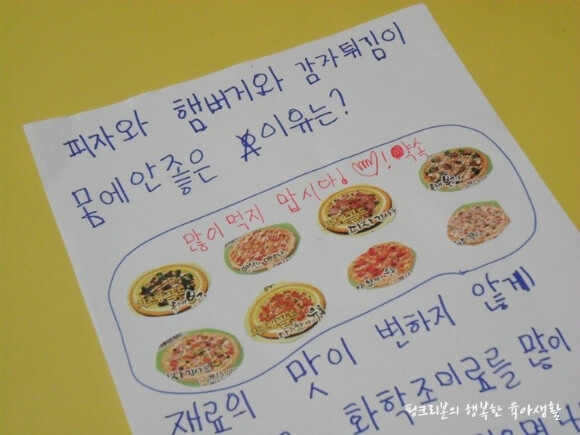 피자와 햄버거와 감자튀김이
몸에 안좋은 이유는?
많이 먹지 맙시다! 약속
재료의 맛이 변하지 않게
화학조미료를 많이
핑크리본의 행복한 육아생활